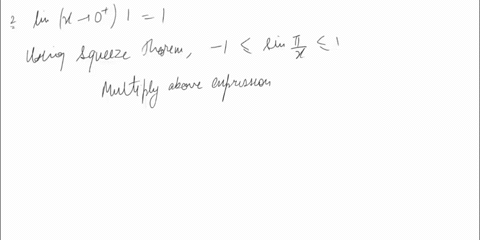 2. lim (x→0⁺) 1 = 1
Using Squeeze Theorem, -1 ≤ sin π/x ≤ 1
Multiply above expression